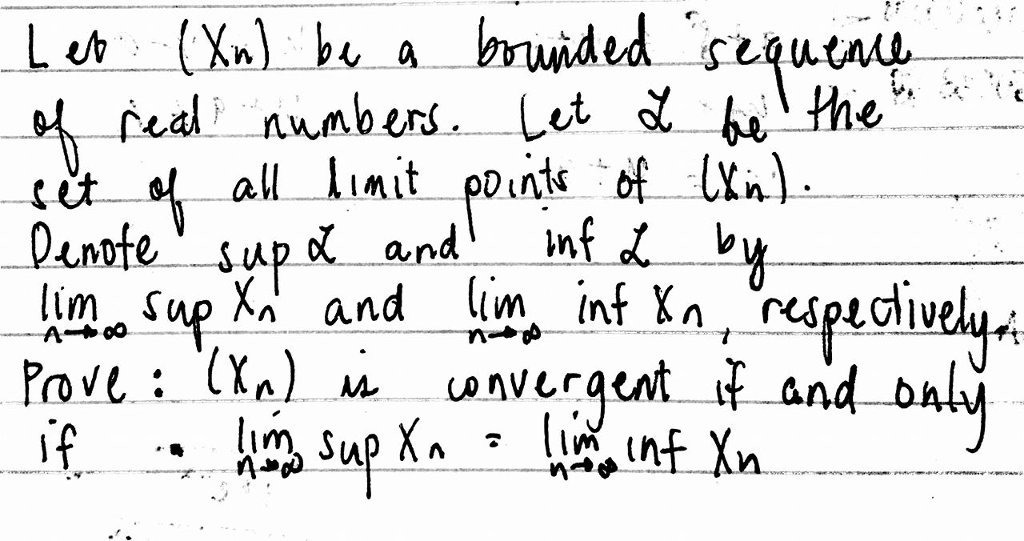 Let (Xn) be a bounded sequence
of real numbers. Let ℒ be the
set of all limit points of (Xn).
Denote sup ℒ and inf ℒ by
lim n→∞ sup Xn and lim n→∞ inf Xn, respectively.
Prove: (Xn) is convergent if and only
if lim n→∞ sup Xn = lim n→∞ inf Xn